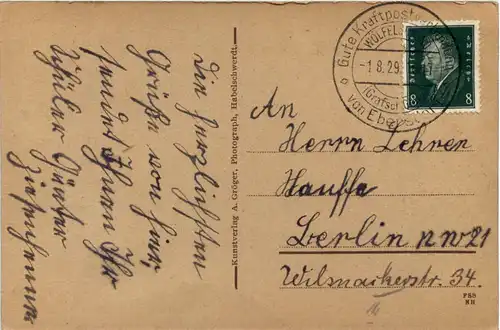 Die herzlichsten
Grüße von hier,
sendet Ihnen Ihr
Schüler Günter
Kunstverlag A. Gröger, Photograph, Habelschwerdt.
Gute Kraftpost
WÖLFELS
-1.8.29
(Grafsch
von Ebe
Deutsches Reich
8 8
An
Herrn Lehrer
Hauffe
Berlin NW21
Wilsnackerstr. 34.